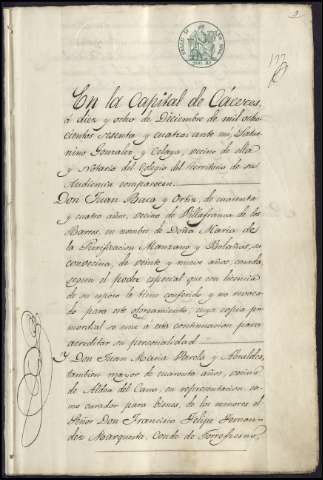 2
177
En la Capital de Cáceres,
á diez y ocho de Diciembre de mil ocho
cientos sesenta y cuatro: ante mi, Satur
nino Gonzalez y Celaya, vecino de ella
y Notario del Colegio del territorio de su
Audiencia comparecen
Don Juan Baca y Ortiz, de cuarenta
y cuatro años, vecino de Villafranca de los
Barros, en nombre de Doña Maria de
la Purificacion Manzano y Bolaños, su
convecina, de veinte y nueve años, casada,
segun el poder especial que con licencia
de su esposo le tiene conferido y no revoca
do para este otorgamiento, cuya copia pri
mordial se une á esta continuacion para
acreditar su personalidad
Y Don Juan Maria Varela y
tambien mayor de cuarenta años, vecino
de Aldea del Cano, en representacion, co
mo curador para bienes, de los menores el
Señor Don Francisco Felipe Hernan
dez Marquesta, Conde de Torrefresno,